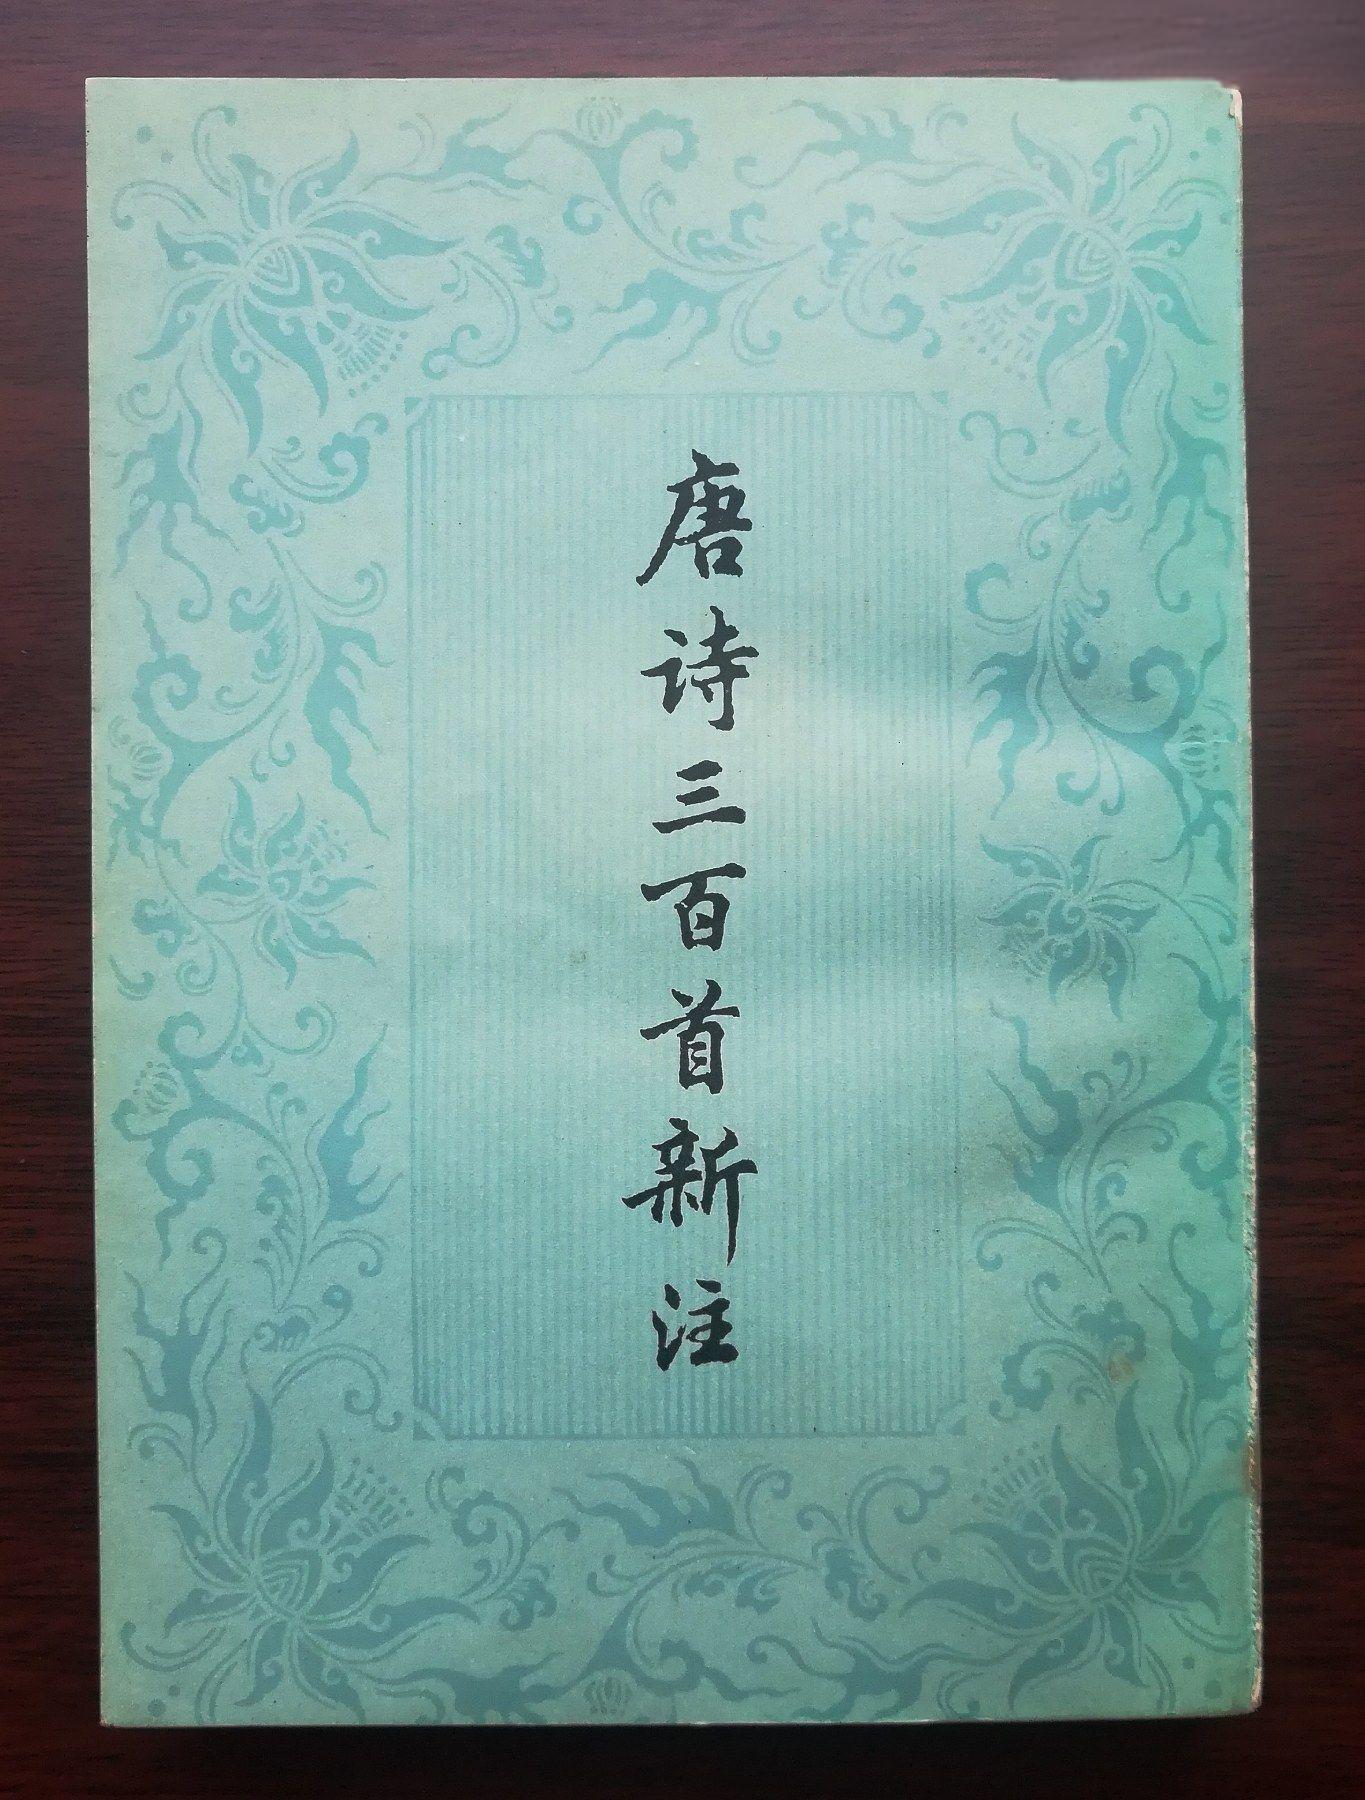 唐诗三百首新注